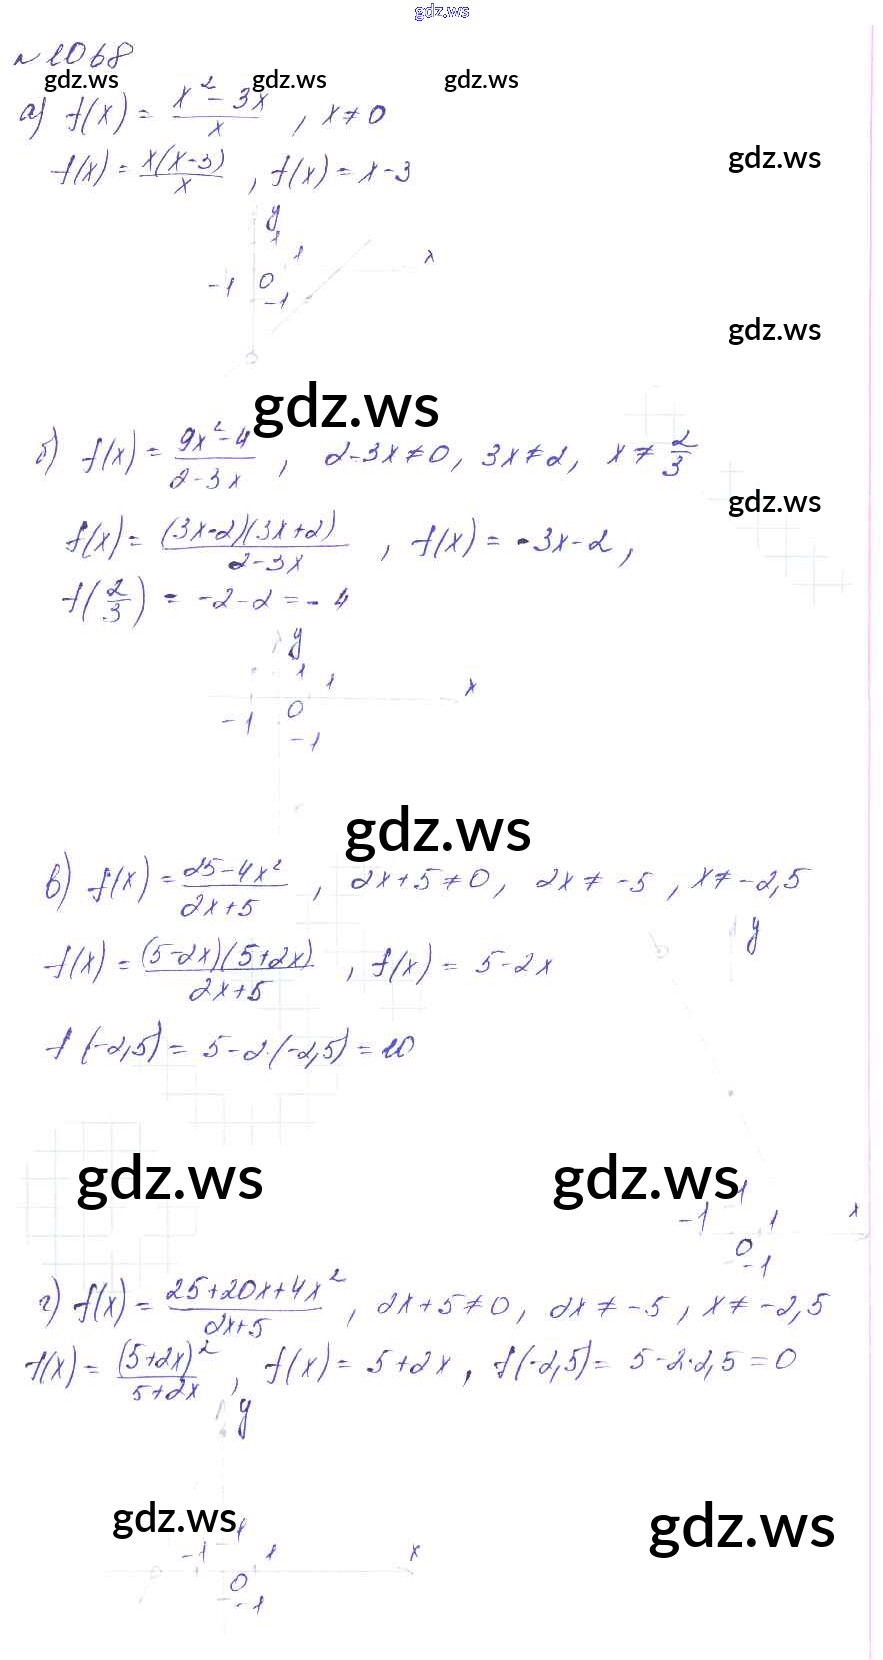 gdz.ws
№1068
gdz.ws gdz.ws gdz.ws
а) f(x) = (x² - 3x)/x , x ≠ 0
gdz.ws
f(x) = x(x-3)/x , f(x) = x-3
y
1
1 x
-1 0
-1
gdz.ws
gdz.ws
б) f(x) = (9x² - 4)/(2-3x) , 2-3x ≠ 0, 3x ≠ 2, x ≠ 2/3
gdz.ws
f(x) = (3x-2)(3x+2)/(2-3x) , f(x) = -3x-2,
f(2/3) = -2-2 = -4
y
1 1 x
-1 0
-1
gdz.ws
в) f(x) = (25-4x²)/(2x+5) , 2x+5 ≠ 0, 2x ≠ -5 , x ≠ -2,5
y
f(x) = (5-2x)(5+2x)/(2x+5) , f(x) = 5-2x
f(-2,5) = 5-2·(-2,5) = 10
gdz.ws gdz.ws
1
-1 1 x
0
-1
г) f(x) = (25+20x+4x²)/(2x+5) , 2x+5 ≠ 0, 2x ≠ -5 , x ≠ -2,5
f(x) = (5+2x)²/(5+2x) , f(x) = 5+2x , f(-2,5) = 5-2·2,5 = 0
y
gdz.ws 1 gdz.ws
-1 1 x
0
-1